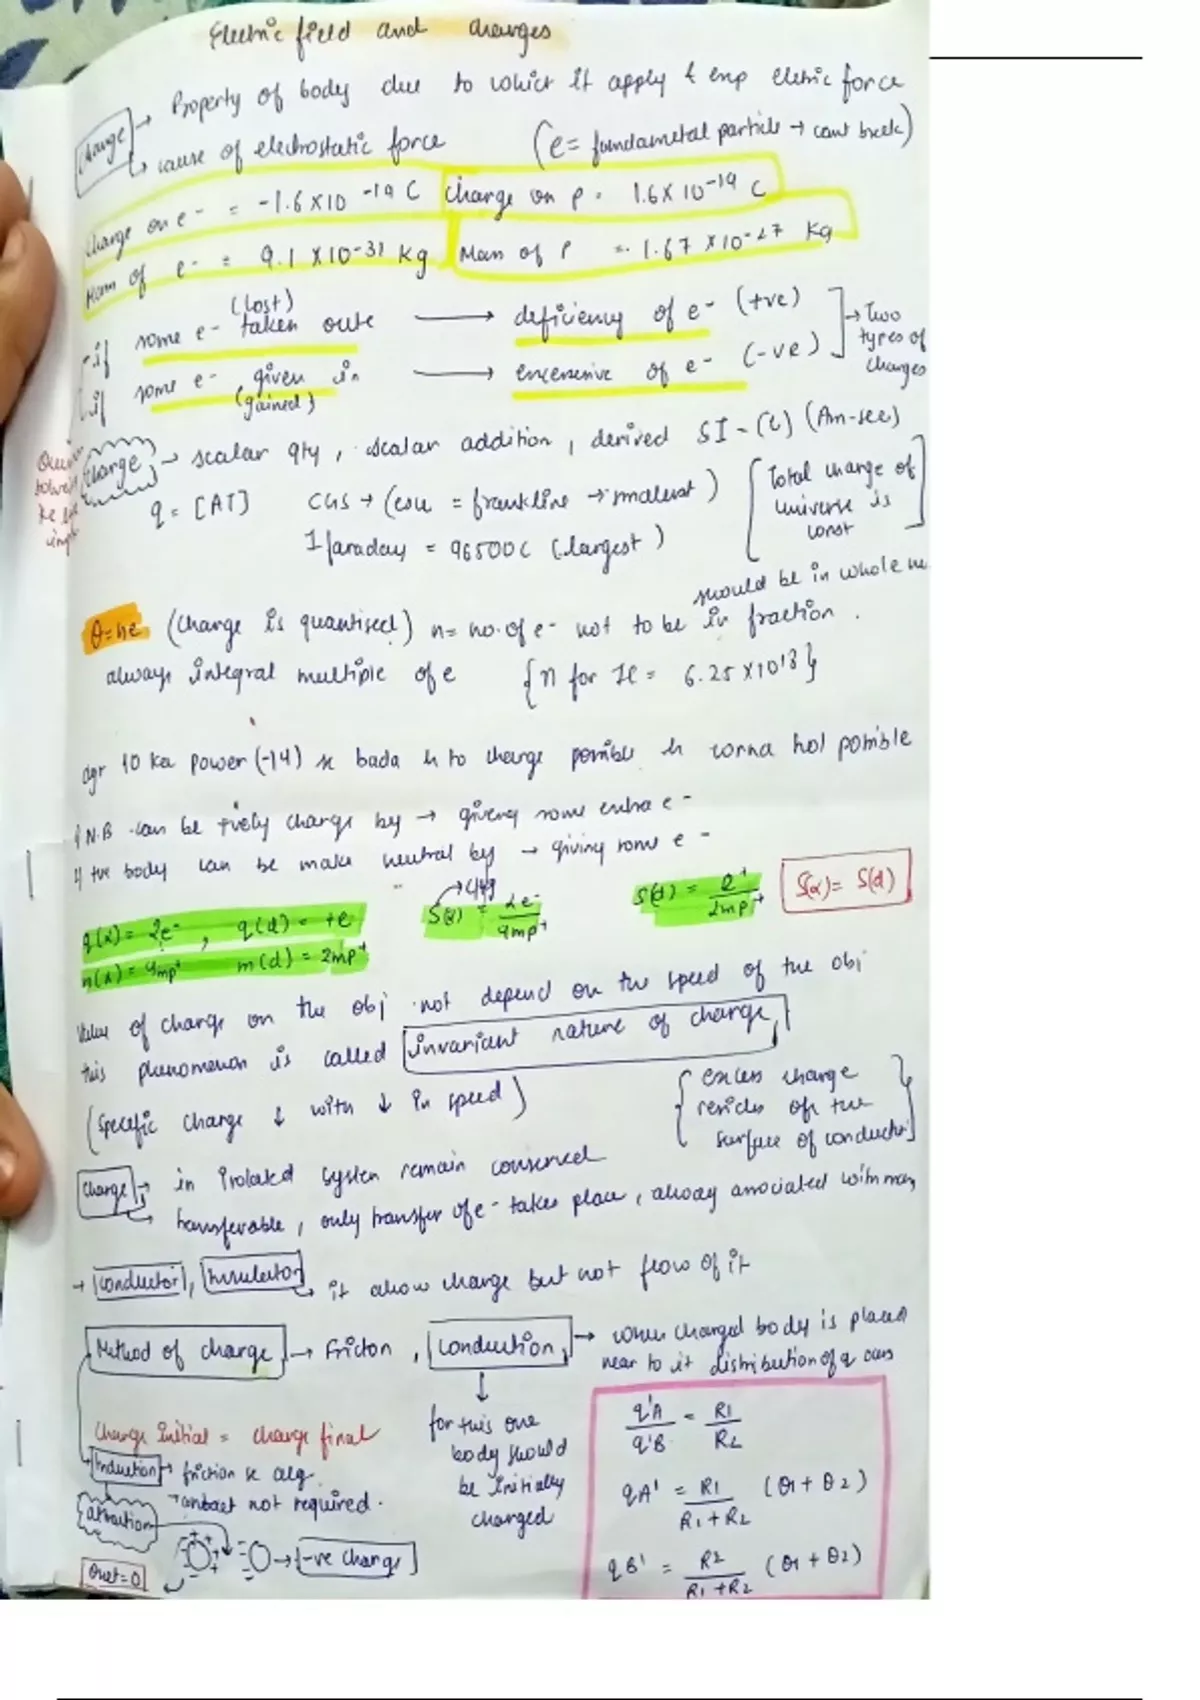 Electric field and charges
Charge → Property of body due to which it apply & exp eletric force
↳ cause of electrostatic force (e = fundametal particle → cant break)
Charge on e- = -1.6 x 10 -19 C Charge on P = 1.6 x 10-19 C
Mass of e- = 9.1 x 10-31 kg Mass of P = 1.67 x 10-27 kg
(lost)
if some e- taken oute → deficiency of e- (+ve)
if some e- given in → excensive of e- (-ve)
(gained)
→ Two types of charges
Charge → scalar qty, scalar addition, derived SI - (C) (Am-sec)
q = [AT] CGS → (esu = frankline → smallest)
1 faraday = 96500C (largest)
Total charge of
universe is
const
should be in whole
Q=ne (Charge is quantised) n = no. of e- not to be in fraction.
always integral multiple of e {n for 1C = 6.25 x 10 18}
agr 10 ka power (-14) se bada h to charge possible h worna nol possible
N.B can be +vely charge by → giveng some extra e-
if +ve body can be make neutral by → giving some e-
q(α) = 2e-, q(d) = +e
m(α) = 4mp+ m(d) = 2mp+
S(α) = 2e- / 4mp+
S(d) = e+ / 2mp+
S(α) = S(d)
Value of charge on the obj not depend on the speed of the obj
this phenomenon is called invariant nature of charge
(Specific charge ↓ with ↓ in speed)
{ excess charge
resides on the
surface of conductor }
Charge → in isolated system remain conserved
↳ transferable, only transfer of e- takes place, alway associated with mass
→ Conductor, Insulator → it allow charge but not flow of it
Method of charge → Fricton, Conduction → when charged body is placed
near to it distribution of q
Charge Initial = charge final
Induction → friction se alg.
→ contact not required.
attraction
→ -ve charge
Qnet = 0
for this one
body should
be initially
charged
q'A / q'B = R1 / R2
qA' = R1 / R1 + R2 (Q1 + Q2)
qB' = R2 / R1 + R2 (Q1 + Q2)